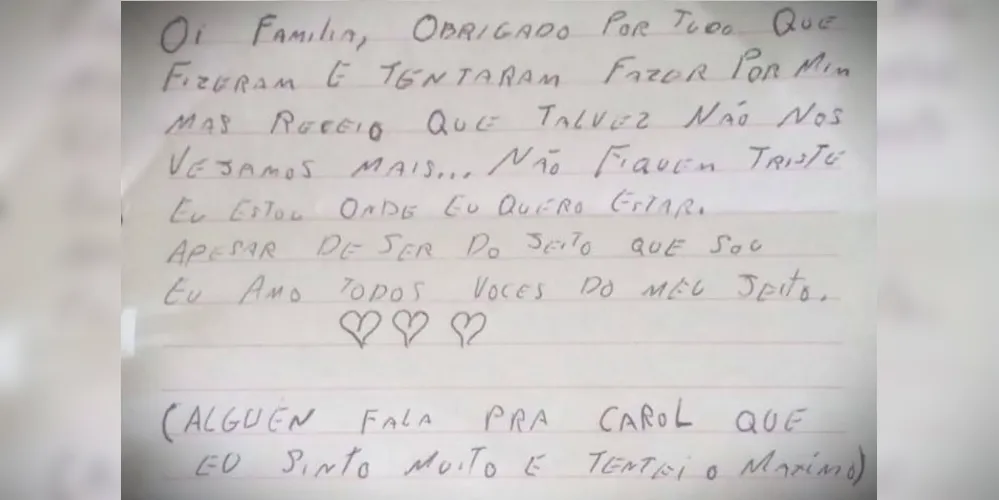 OI FAMILIA, OBRIGADO POR TUDO QUE
FIZERAM E TENTARAM FAZER POR MIM
MAS RECEIO QUE TALVEZ NÃO NOS
VEJAMOS MAIS... NÃO FIQUEM TRISTE
EU ESTOU ONDE EU QUERO ESTAR.
APESAR DE SER DO JEITO QUE SOU
EU AMO TODOS VOCES DO MEU JEITO.
(ALGUÉN FALA PRA CAROL QUE
EU SINTO MUITO E TENTEI O MAXIMO)